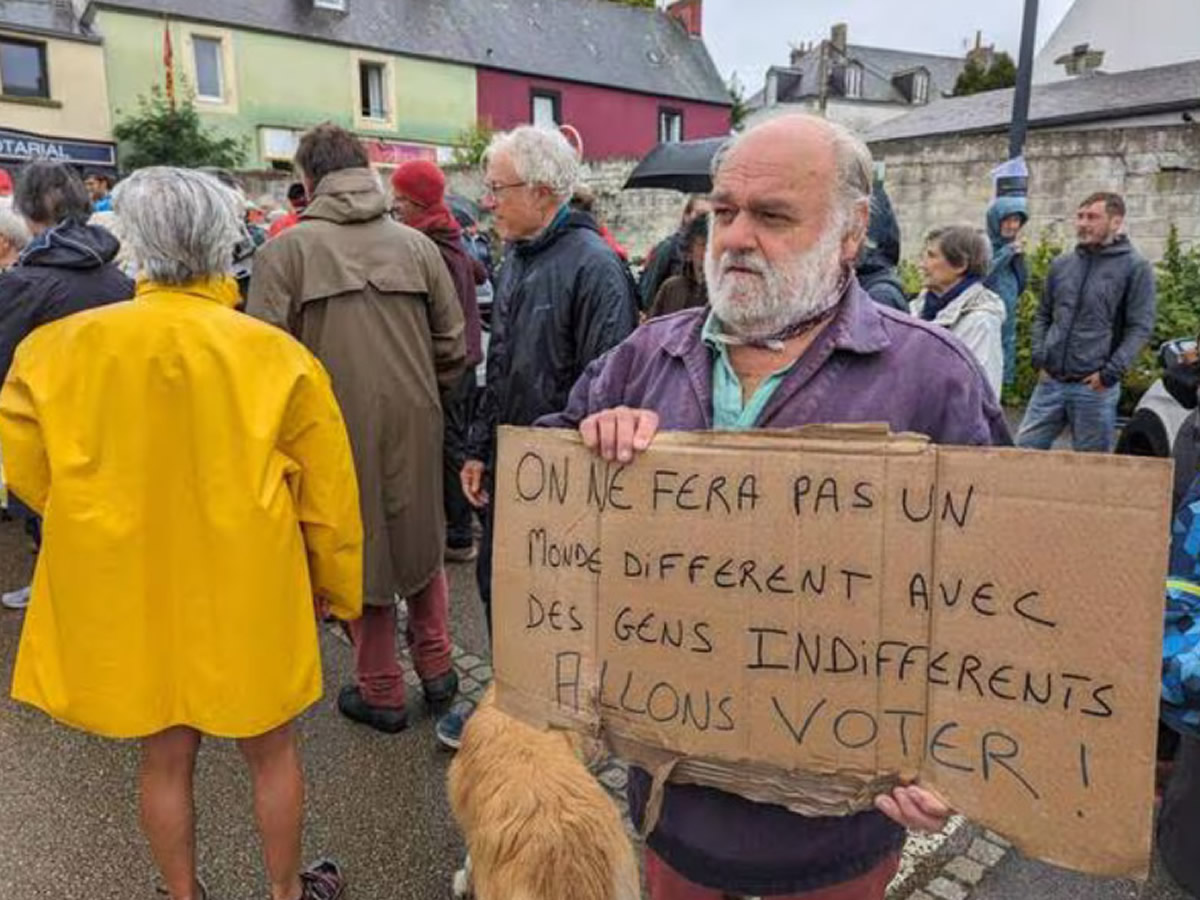 OTARIAL
ON NE FERA PAS UN
MONDE DIFFERENT AVEC
DES GENS INDIFFERENTS
ALLONS VOTER !